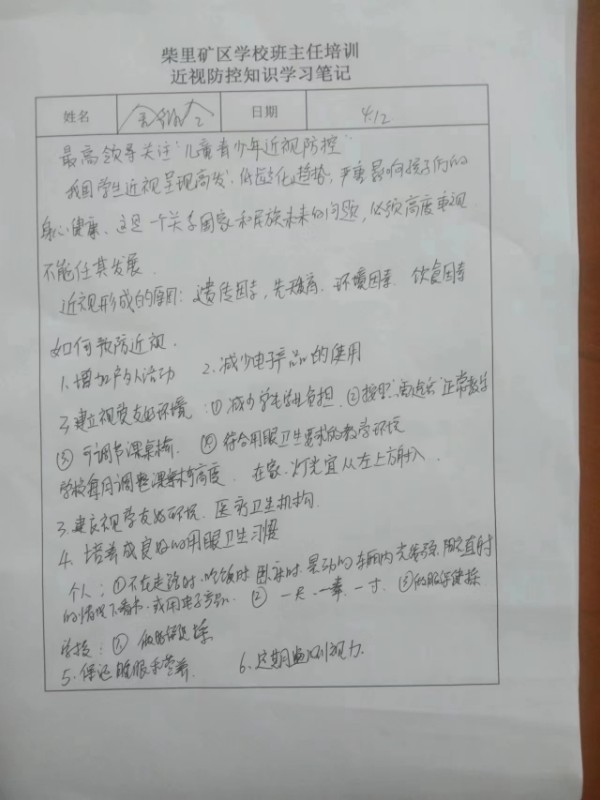 柴里矿区学校班主任培训
近视防控知识学习笔记
姓名 日期 4.12
最高领导关注"儿童青少年近视防控"
我国学生近视呈现高发、低龄化趋势,严重影响孩子们的
身心健康、这是一个关系国家和民族未来的问题,必须高度重视
不能任其发展.
近视形成的原因:遗传因素,先天 环境因素 饮食因素
如何预防近视.
1.增加户外活动 2.减少电子产品的使用
3.建立视觉友好环境:①减少学生学业负担.②按照 正常教学
③可调节课桌椅. ④符合用眼卫生要求的教学环境
学校每月调整课桌椅高度. 在家.灯光宜从左上方射入.
3.建立视学友好环境.医疗卫生机构.
4.培养成良好的用眼卫生习惯
个人:①不在走路时.吃饭时 时.晃动的车厢内 光线 阳光直射
的情况下看书.或用电子产品. ②一尺.一拳.一寸.③做眼保健操
学校:① 做眼保健操
5.保证 营养. 6.定期监测视力.